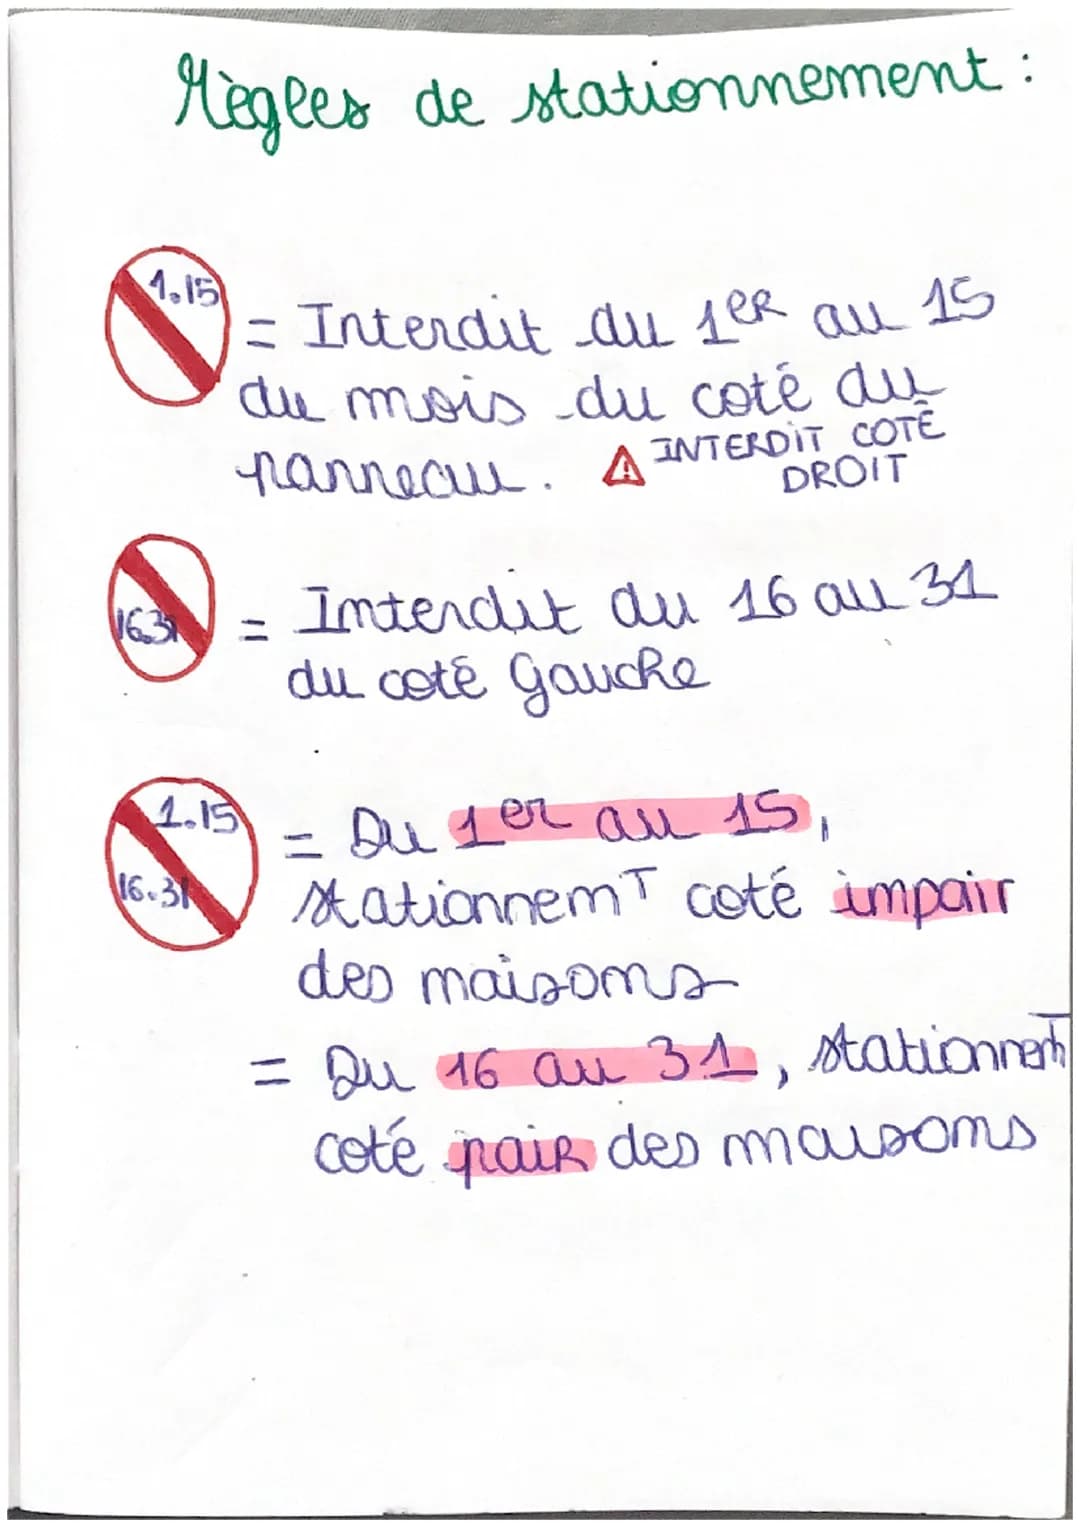 Règles de stationnement :
1.15
= Interdit du 1er au 15
du mois du coté du
panneau. ⚠ INTERDIT COTÉ
DROIT
16.31
= Interdit du 16 au 31
du coté gauche
1.15
16.31
= Du 1er au 15,
stationnemT coté impair
des maisons
= Du 16 au 31, stationnemT
coté pair des maisons